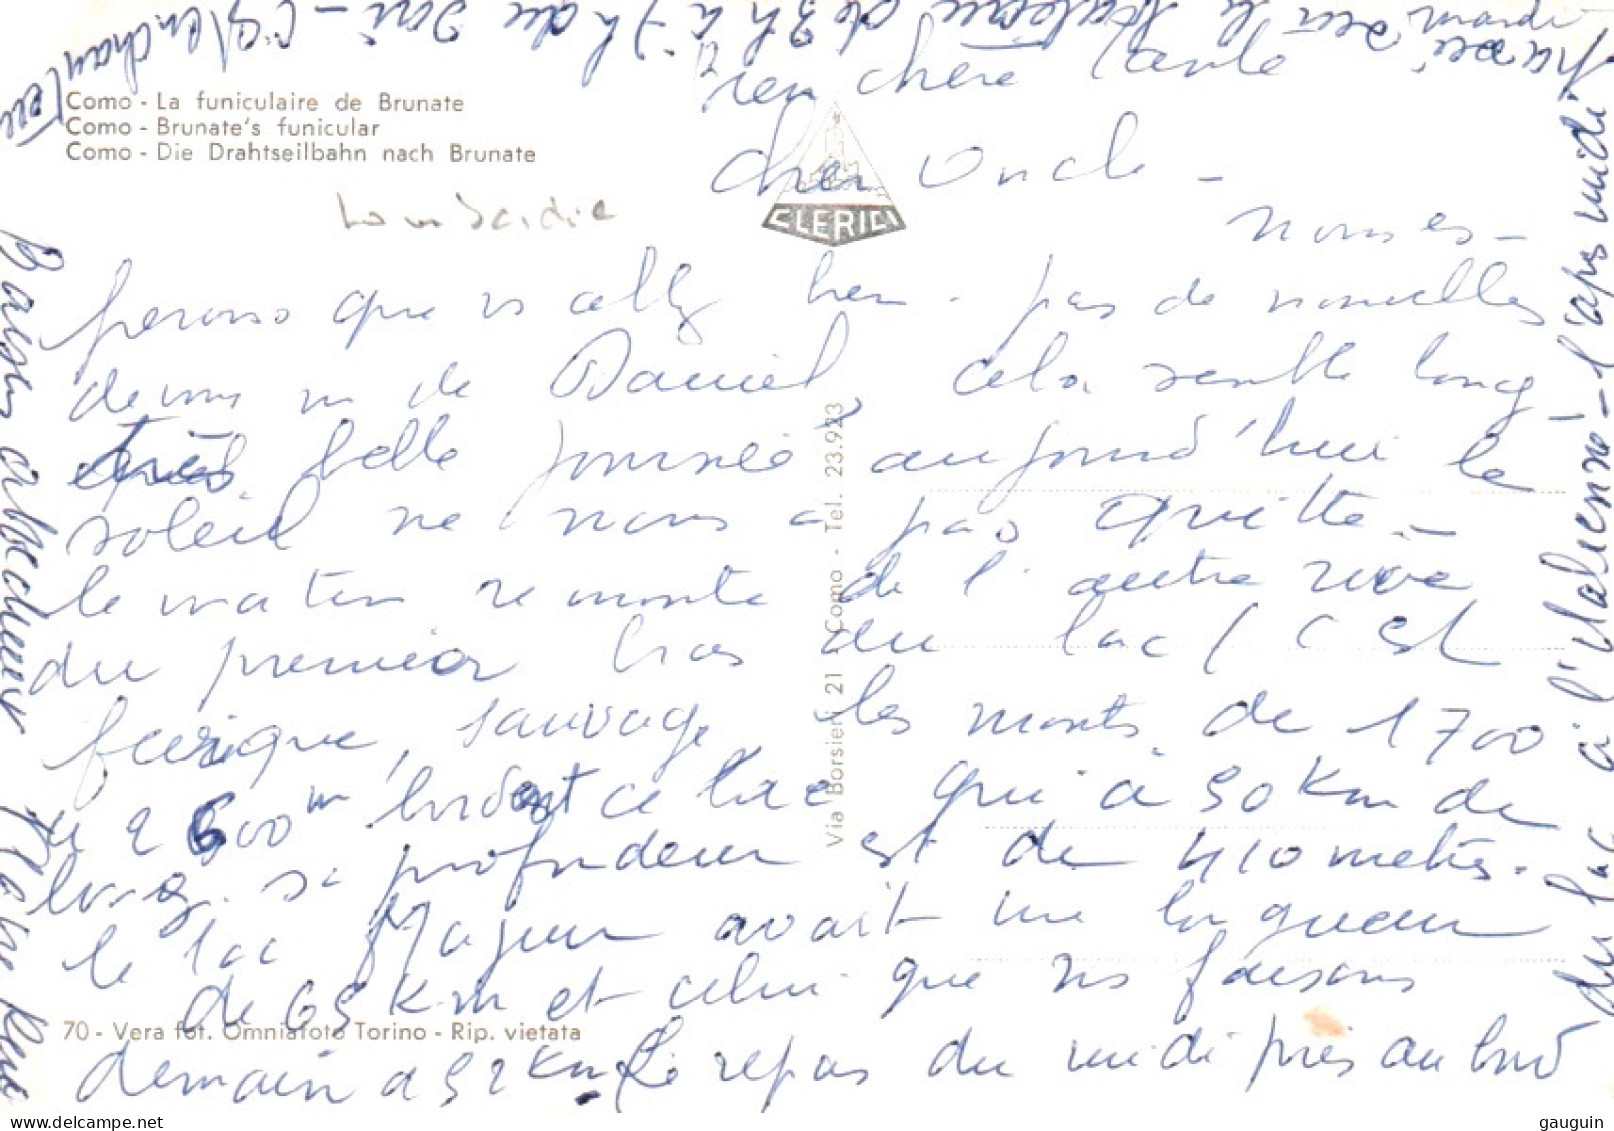 Como - La funiculaire de Brunate
Como - Brunate's funicular
Como - Die Drahtseilbahn nach Brunate
Lombardie
CLERICI
Via Borsieri 21 Como - Tel. 23.923
chère Tante
cher Oncle -
nous es-
perons que vs allez bien - pas de nouvelles
de Daniel, cela semble long -
très belle journée aujourd'hui le
soleil ne nous a pas quitté -
le matin remonté de l'autre rive
du premier bras du lac / c'est
féérique, sauvage les monts de 1700
à 2600 m bordent ce lac qui a 50 Km de
long. sa profondeur est de 410 mètres.
le lac Majeur avait une longueur
de 65 Km et celui que ns faisons
demain a 52 Km. Le repas du midi pris au bord
du lac à l'italienne - l'après midi
de 3h à 7h du soir -
Bons baisers
70 - Vera fot. Omniafoto Torino - Rip. vietata
gauguin